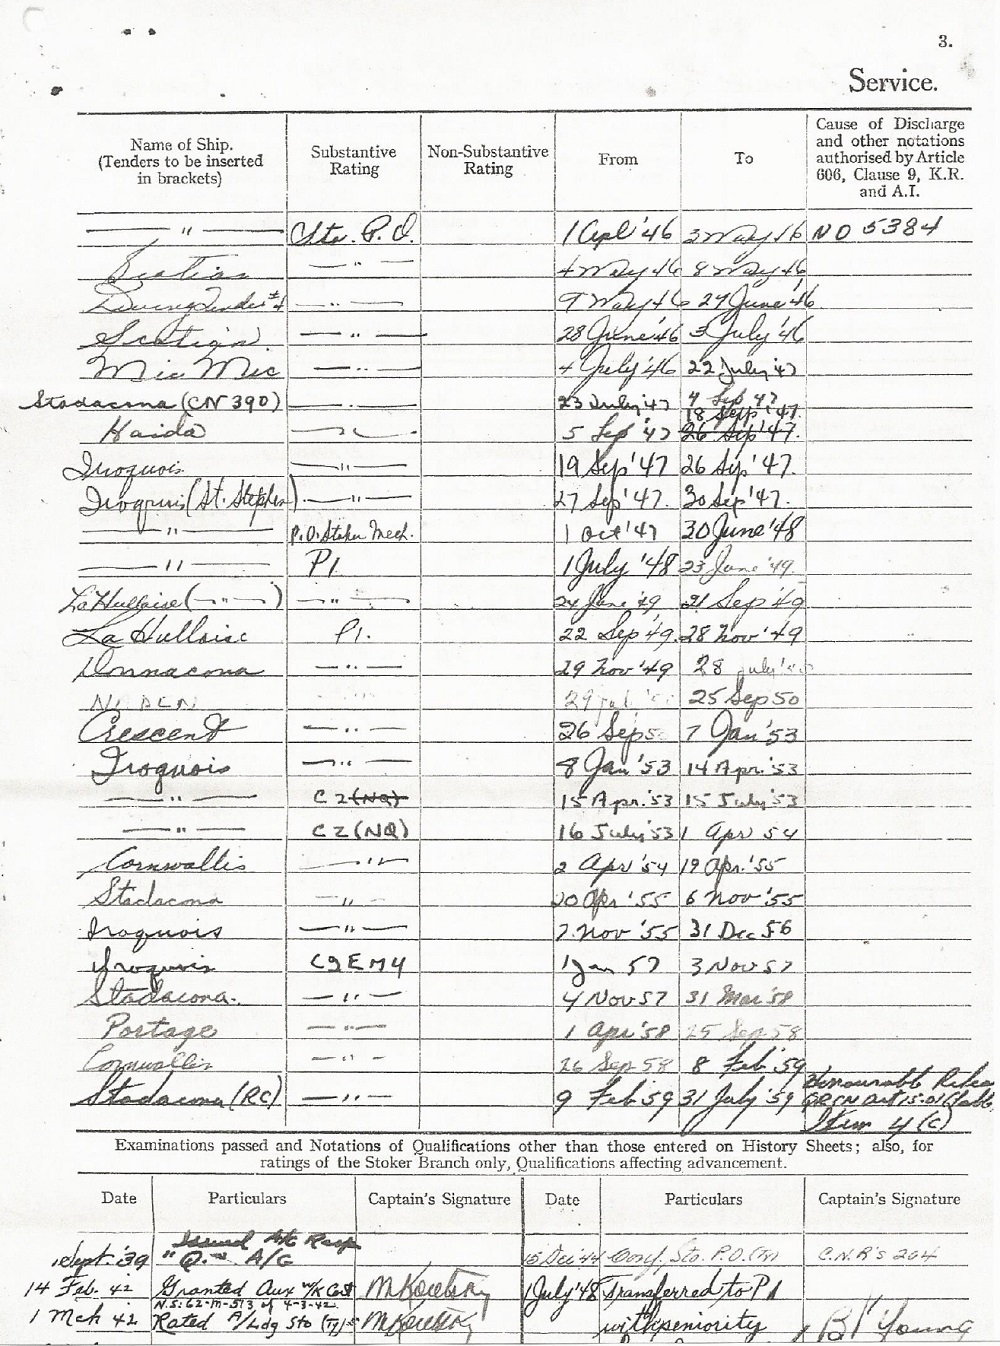 3.
Service.
Name of Ship. (Tenders to be inserted in brackets) Substantive Rating Non-Substantive Rating From To Cause of Discharge and other notations authorised by Article 606, Clause 9, K.R. and A.I.
— " — Sto. P.O. 1 Apl '46 3 May 46 NO 5384
Scotian — " — 4 May 46 8 May 46
Diving Tender #4 — " — 9 May 46 27 June '46
Scotian — " — 28 June '46 3 July '46
Mic Mac — " — 4 July '46 22 July '47
Stadacona (CN 390) — " — 23 July '47 4 Sep '47
Haida — " — 5 Sep '47 18 Sept '47 26 Sep '47.
Iroquois — " — 19 Sep '47 26 Sep '47.
Iroquois (St. Stephen) — " — 27 Sep '47. 30 Sep '47.
— " — P.O. Stoker Mech. 1 Oct '47 30 June '48
— " — P1. 1 July '48 23 June '49.
La Hulloise (— " —) — " — 24 June '49 21 Sep '49
La Hulloise P1. 22 Sep '49. 28 Nov '49
Donnacona — " — 29 Nov '49 28 July
— " — 25 Sep 50
Crescent — " — 26 Sep 5 7 Jan '53
Iroquois — " — 8 Jan '53 14 Apr. '53
— " — C2 (NQ) 15 Apr. '53 15 July '53
— " — C2 (NQ) 16 July '53 1 Apr 54
Cornwallis — " — 2 Apr '54 19 Apr. '55
Stadacona — " — 20 Apr '55 6 Nov '55
Iroquois — " — 7 Nov '55 31 Dec 56
Iroquois C2EM4 1 Jan 57 3 Nov 57
Stadacona. — " — 4 Nov 57 31 Mar '58
Portage — " — 1 Apr '58 25 Sep 58
Cornwallis — " — 26 Sep 58 8 Feb '59
Stadacona (RC) — " — 9 Feb '59 31 July '59 Honourable Release QRCN Art 15.01 (Table Item 4 (c)
Examinations passed and Notations of Qualifications other than those entered on History Sheets; also, for
ratings of the Stoker Branch only, Qualifications affecting advancement.
Date Particulars Captain's Signature Date Particulars Captain's Signature
Issued A/G Resp
Sept. '39 " Q. A/G 15 Dec '44 Conf. Sto. P.O. (M) C.N.R's 264
14 Feb. 42 Granted Aux W/K Cert 1 July '48 Transferred to P1
N.S: 62-M-513 of 4-3-42.
1 Mch 42 Rated A/Ldg Sto (Ty) with seniority Young